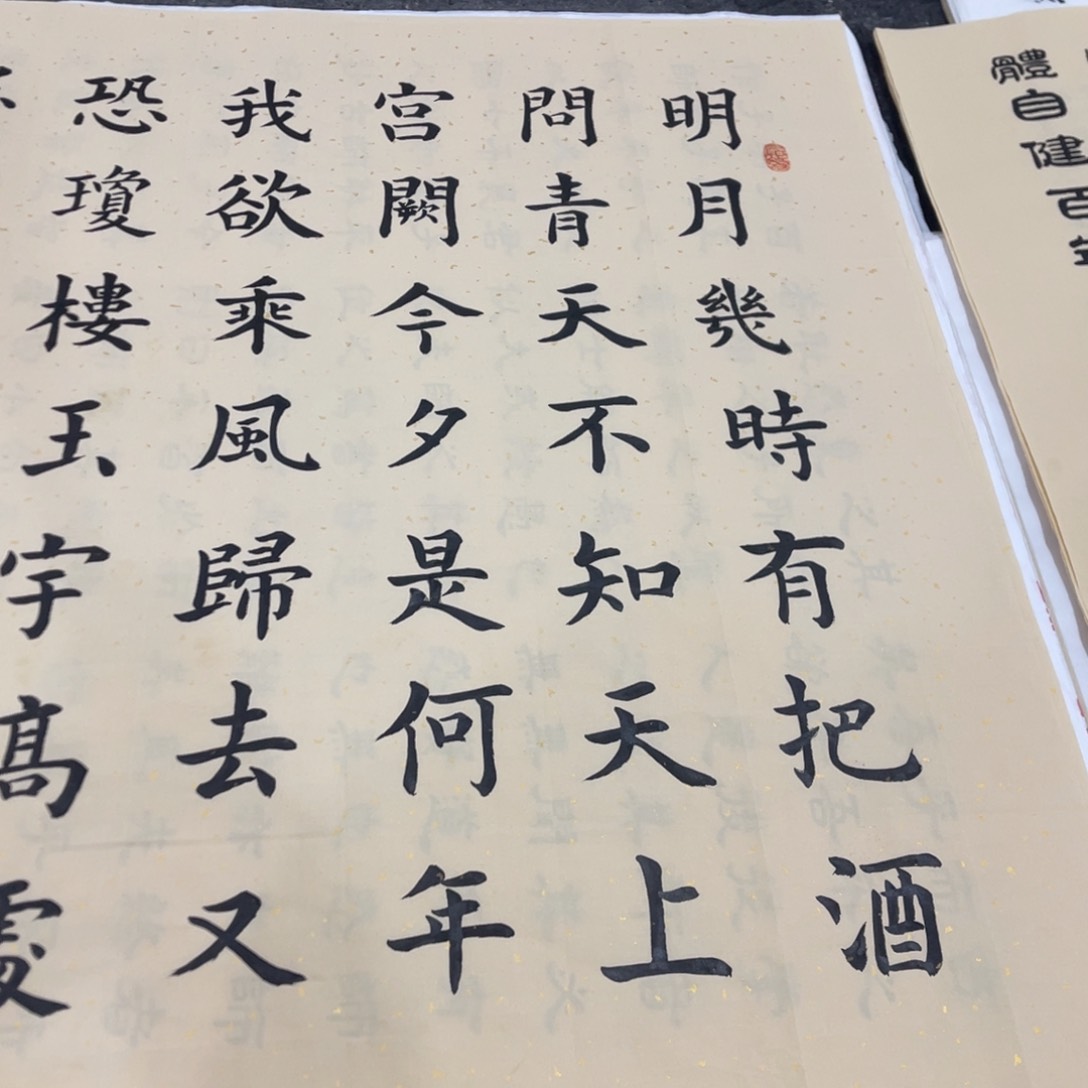 體自健百
明月幾時有把酒
問青天不知天上
宫闕今夕是何年
我欲乘風歸去又
恐瓊樓玉宇髙處